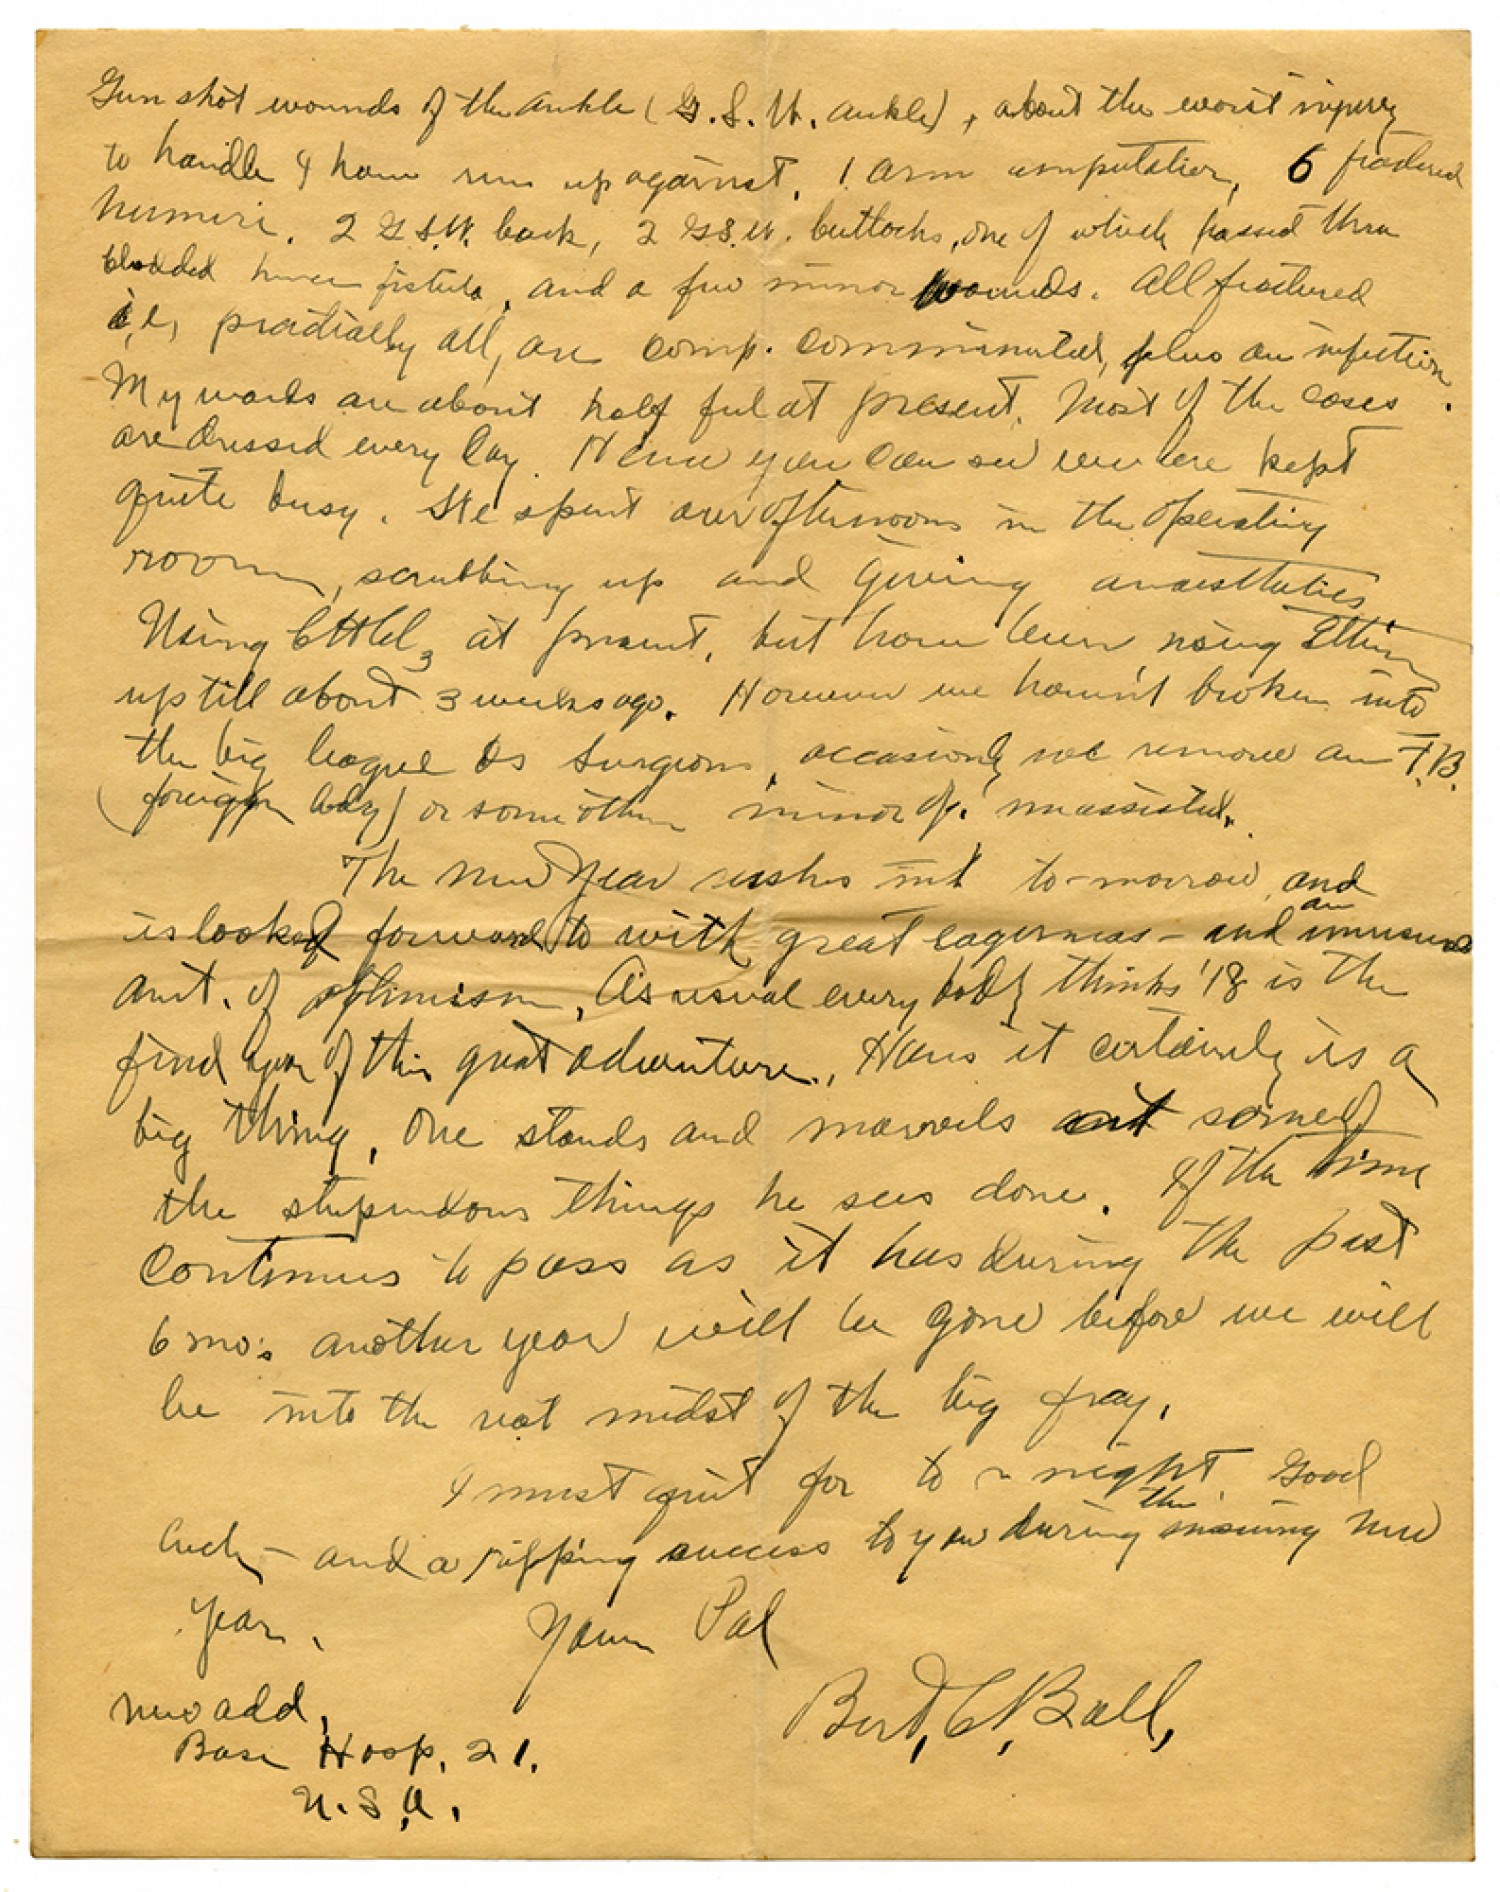 Gun shot wounds of the ankle (G.S.W. ankle), about the worst injury
to handle I have run up against, 1 arm amputation, 6 fractured
humeri, 2 G.S.W. back, 2 G.S.W. buttocks, one of which passed thru
and a few minor wounds. All fractured
i.e, practially all, are comp. comminuted, plus an infection.
My wards are about half full at present. Most of the cases
are dressed every day. Hence you can see we are kept
quite busy. We spent our afternoons in the operating
room, scrubbing up and giving anaesthetics
Using at present, but have been using Ether
up till about 3 weeks ago. However we haven't broken into
the big league as surgeons, occasionly we remove an F.B.
(foreign body) or some other minor op. unassisted.
The New Year rushes in to-morrow and
is looked forward to with great eagerness - and an unusual
amt. of optimism. As usual every body thinks '18 is the
final year of this great adventure. Harris it certainly is a
big thing, One stands and marvels at some of
the stupendous things he sees done. If the time
continues to pass as it has during the past
6 mo's another year will be gone before we will
be into the midst of the big fray.
I must quit for to-night. Good
luck - and a ripping success to you during the New
Year.
Your Pal
Bert, C, Ball,
New add,
Base Hosp, 21.
U.S.A.